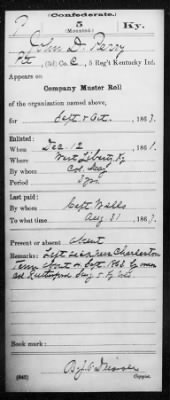 (Confederate.)
P 5 Ky.
(Mounted.)
John D. Perry
Pvt, (3d) Co. C, 5 Reg't Kentucky Inf.
Appears on
Company Muster Roll
of the organization named above,
for Sept & Oct, 1863.
Enlisted:
When Dec. 12, 1861.
Where West Liberty Ky
By whom Col.
Period 3 yrs.
Last paid:
By whom Capt Wells
To what time Aug 31, 1863.
Present or absent Absent
Remarks: Left sick near Charleston
Tenn about Sept 1863 by
Col
Book mark:
(642)
Copyist.